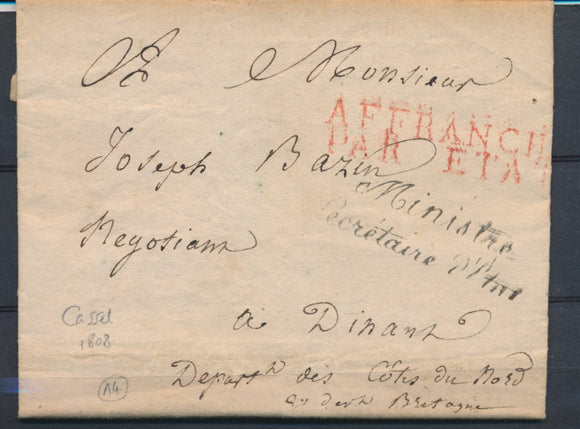 A Monsieur
AFFRANCHI
PAR ETAT
Joseph Bazin
Ministre
Secrétaire d'Etat
Negotiant
Cassel
1808
a Dinant
14
Depart.t des Côtes du Nord
Bretagne